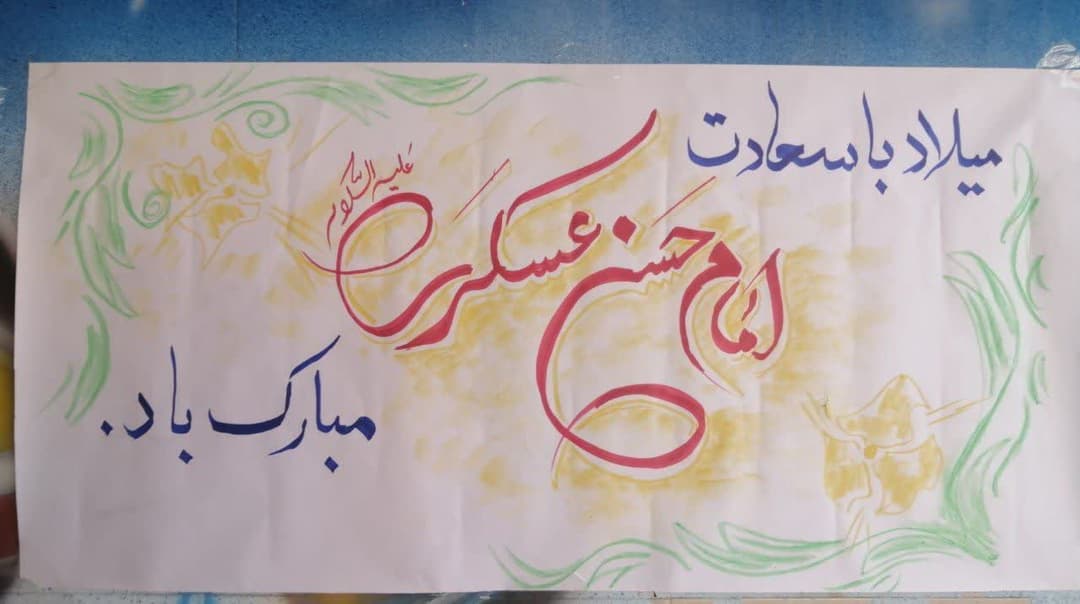 میلاد با سعادت
امام حسن عسکری
علیه السلام
مبارک باد.